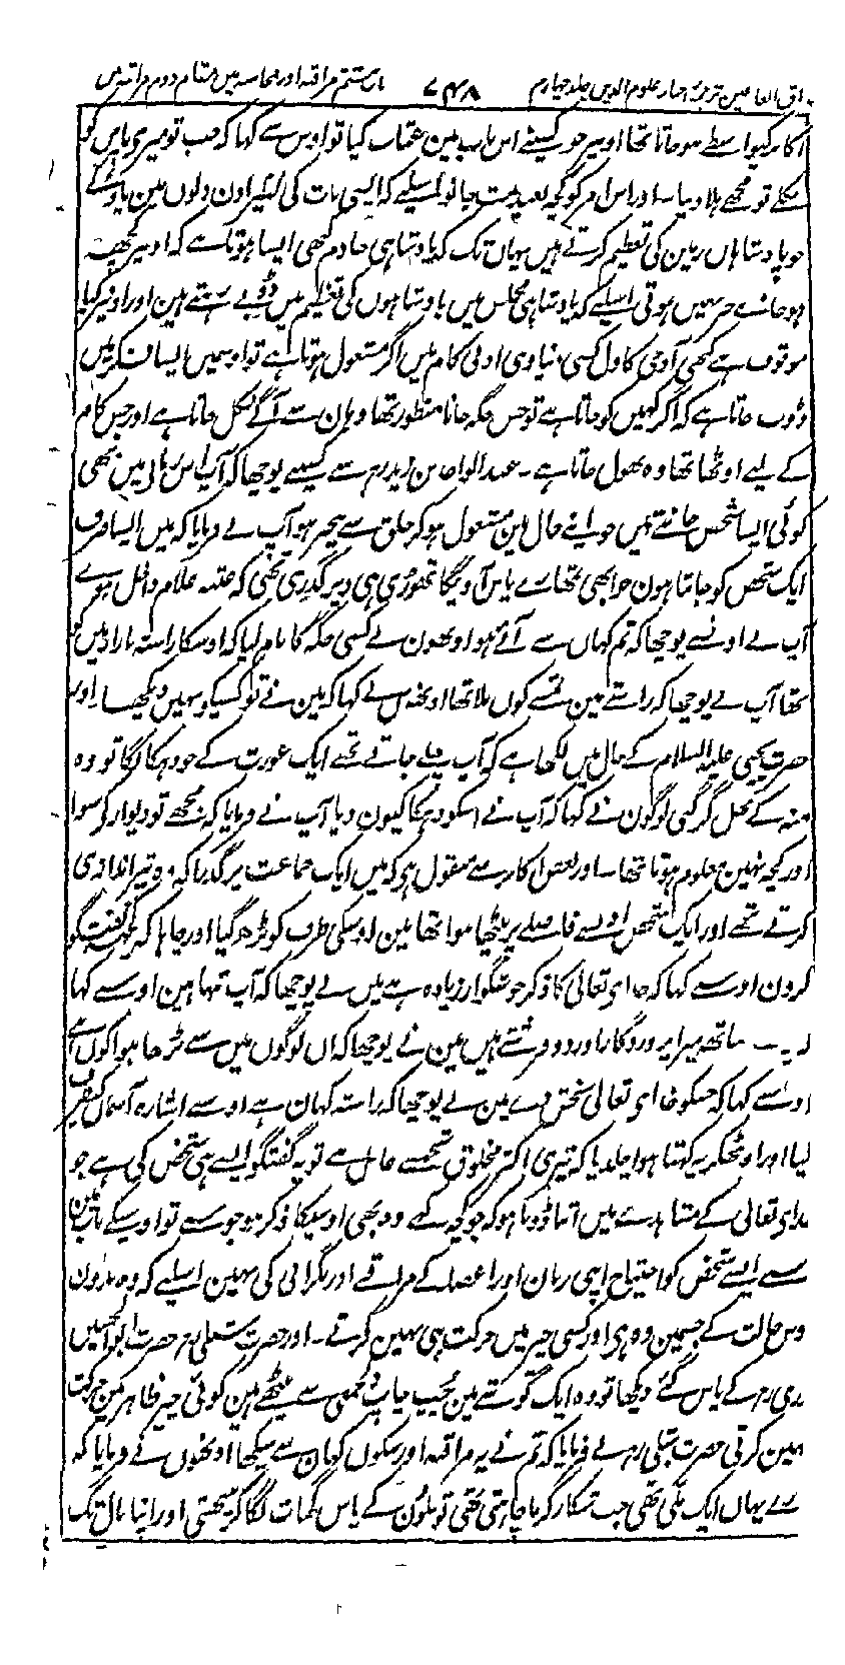 مذاق العارفین ترجمۂ احیاء علوم الدین جلد چہارم ۷۴۸ باب ہشتم مراقبہ اور محاسبہ میں مقام دوم مراقبہ میں
اکابر کیواسطے ہو جاتا تھا اور جو کسینے اس باب مین عتاب کیا تو اوس سے کہا کہ جب تو میری پاس کو
نکلے تو مجھے ہلا دیا۔ اور اس امر کو کچھ بعید مت جانو اسلیے کہ ایسی بات کی نظیر اون دلوں مین پاؤگے
جو پادشاہاں زمین کی تعظیم کرتے ہیں یہاں تک کہ پادشاہی خادم کبھی ایسا ہوتا ہے کہ اوپر کچھ
ہو جانے سے خبر نہیں ہوتی اسلیے کہ پادشاہی مجلس میں پادشاہوں کی تعظیم میں ڈوبے رہتے ہین اور اوپر کیا
موقوف ہے کبھی آدمی کا دل کسی دنیاوی ادنی کام میں اگر مشغول ہوتا ہے تو اوسمیں ایسا فکر میں
ڈوب جاتا ہے کہ اگر کہیں کو جاتا ہے تو جس جگہ جانا منظور تھا وہان سے آگے نکل جاتا ہے اور جس کام
کے لیے اوٹھا تھا وہ بھول جاتا ہے۔ عبد الواحد بن زید رح سے کسینے پوچھا کہ آپ اس زمانہ میں بھی
کوئی ایسا شخص جانتے ہیں جو اپنے حال مین مشغول ہو کر خلق سے بیخبر ہو آپ نے فرمایا کہ میں ایسا صرف
ایک شخص کو جانتا ہون جو ابھی تمھارے پاس آویگا تھوڑی ہی دیر گذری تھی کہ عتبہ غلام داخل ہوئے
آپ نے اونسے پوچھا کہ تم کہاں سے آئے ہو اونھون نے کسی جگہ کا نام لیا کہ اوسکا راستہ بازار میں کو
تھا آپ نے پوچھا کہ راستے مین تمسے کون ملا تھا اونھوں نے کہا کہ مین نے تو کسیکو نہیں دیکھا اور
حضرت یحیی علیہ السلام کے حال میں لکھا ہے کہ آپ چلے جاتے تھے ایک عورت کے جو دہکا لگا تو وہ
منہ کے بھل گر گئی لوگون نے کہا کہ آپ نے اسکو دہکا کیون دیا آپ نے فرمایا کہ مجھے تو دیوار کے سوا
اور کچہ نہین معلوم ہوتا تھا۔ اور بعض اکابر سے منقول ہی کہ میں ایک جماعت پر گذرا کہ وہ تیر اندازی
کرتے تھے اور ایک شخص اونسے فاصلے پر بیٹھا ہوا تھا مین اوسکی طرف کو بڑھ گیا اور چاہا کہ کچھ گفتگو
کرون اوسنے کہا کہ خدای تعالی کا ذکر خوشگوار زیادہ ہے میں نے پوچھا کہ آپ تنہا ہین اوسنے کہا
ساتھ میرا پروردگار اور دو فرشتے ہیں مین نے پوچھا کہ ان لوگوں میں سے بڑھا ہوا کون ہے
اوسنے کہا کہ جسکو خدای تعالی بخش دے مین نے پوچھا کہ راستہ کہان ہے اوسنے اشارہ آسمان کیطرف
کیا اور اوٹھکر یہ کہتا ہوا چلدیا کہ تیری اکثر مخلوق تجھسے غافل ہے تو یہ گفتگو ایسے ہی شخص کی ہے جو
خدای تعالی کے مشاہدے میں اتنا ڈوبا ہو کہ جو کچھ کہے وہ بھی اوسیکا ذکر ہو جو سنے تو اوسیکے باب مین
سنے ایسے شخص کو احتیاج اپنی زبان اور اعضا کے مراقبے اور نگرانی کی نہین اسلیے کہ وہ بدون
اوس حالت کے جسمین وہ ہی اور کسی چیز میں حرکت ہی نہین کرتے۔ اور حضرت شبلی رح حضرت ابوالحسین
نوری رح کے پاس گئے دیکھا تو وہ ایک گوشے مین چپ چاپ دلجمعی سے بیٹھے ہین کوئی چیز ظاہر مین حرکت
نہین کرتی حضرت شبلی رح نے فرمایا کہ تم نے یہ مراقبہ اور سکون کہان سے سیکھا اونھوں نے فرمایا کہ
میرے یہاں ایک بلی تھی جب شکار کرنا چاہتی تھی تو بلون کے پاس گھات لگا کر بیٹھتی اور اپنا بال تک